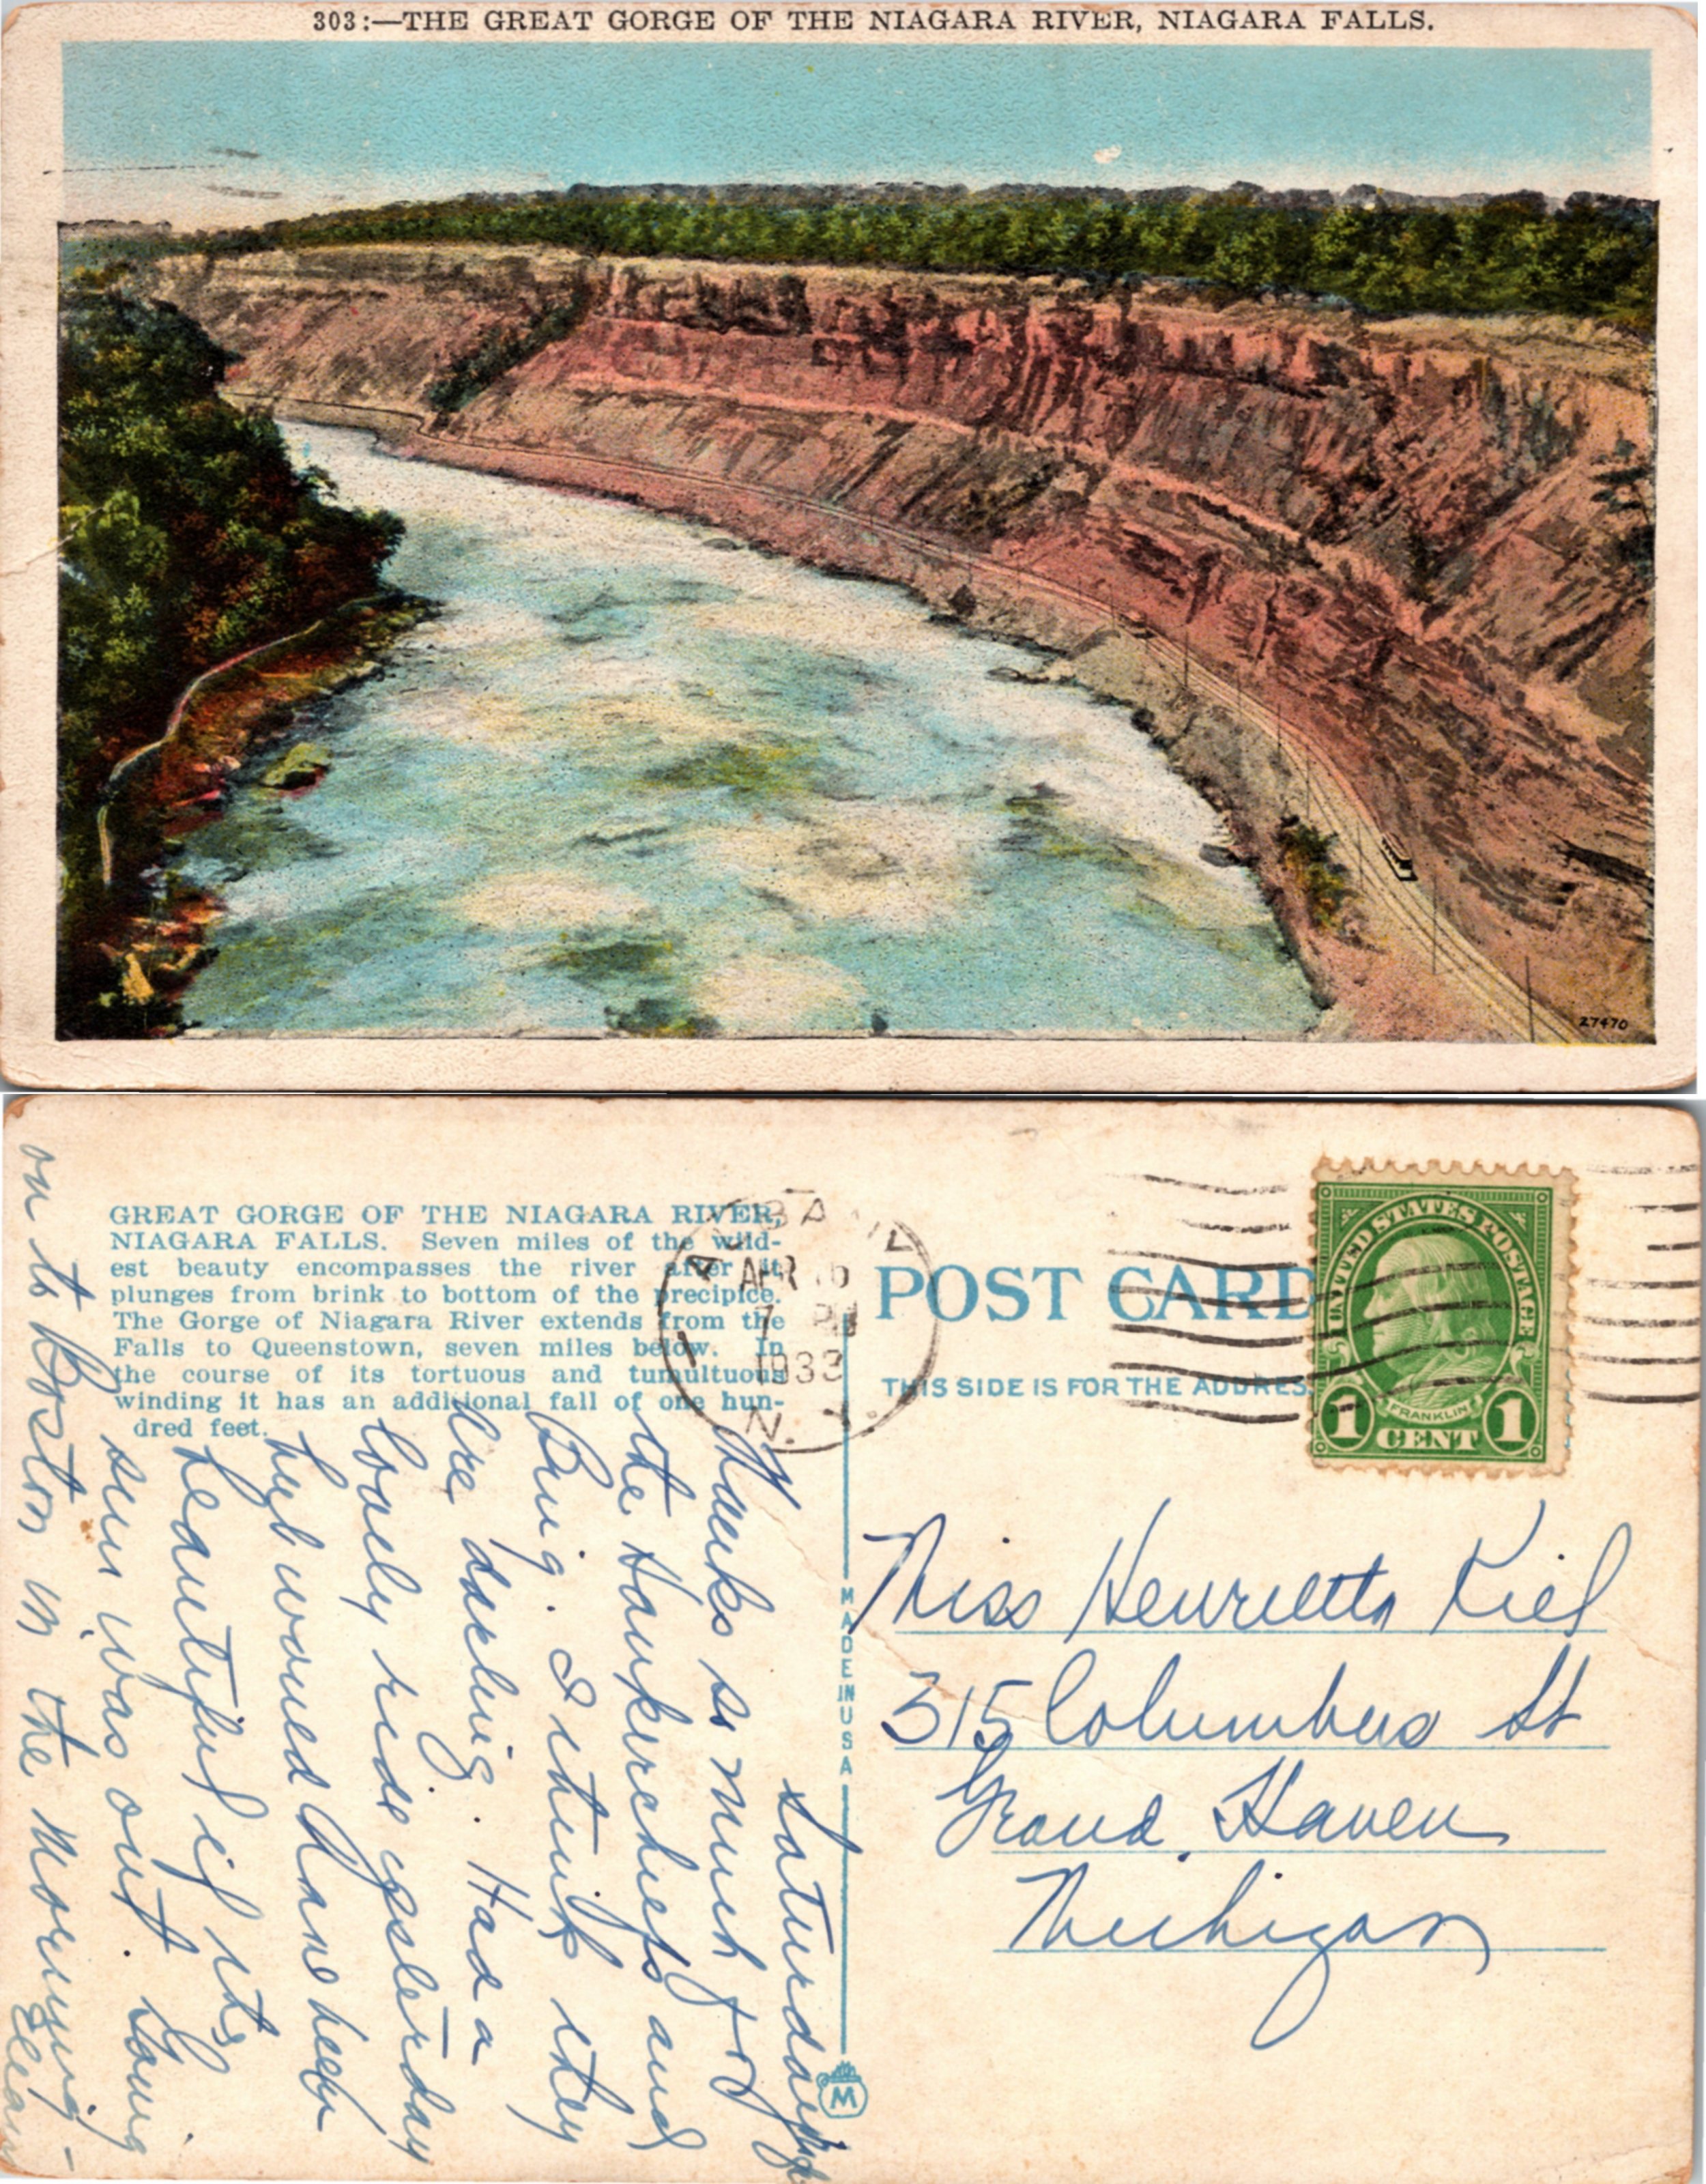 303:—THE GREAT GORGE OF THE NIAGARA RIVER, NIAGARA FALLS.
27470
GREAT GORGE OF THE NIAGARA RIVER,
NIAGARA FALLS. Seven miles of the wild-
est beauty encompasses the river after it
plunges from brink to bottom of the precipice.
The Gorge of Niagara River extends from the
Falls to Queenstown, seven miles below. In
the course of its tortuous and tumultuous
winding it has an additional fall of one hun-
dred feet.
ALBANY
APR 16
7 PM
1933
N. Y.
POST CARD
THIS SIDE IS FOR THE ADDRESS
UNITED STATES POSTAGE
FRANKLIN
1 CENT 1
MADE IN USA
M
Saturday
Thanks so much for
the Hankerchiefs and
Bug. I think they
are darling. Had a
lovely ride yesterday
but would have been
beautiful if the
sun was out. Going
on to Boston in the morning -
Miss Henrietta Kiel
315 Columbus St
Grand Haven
Michigan